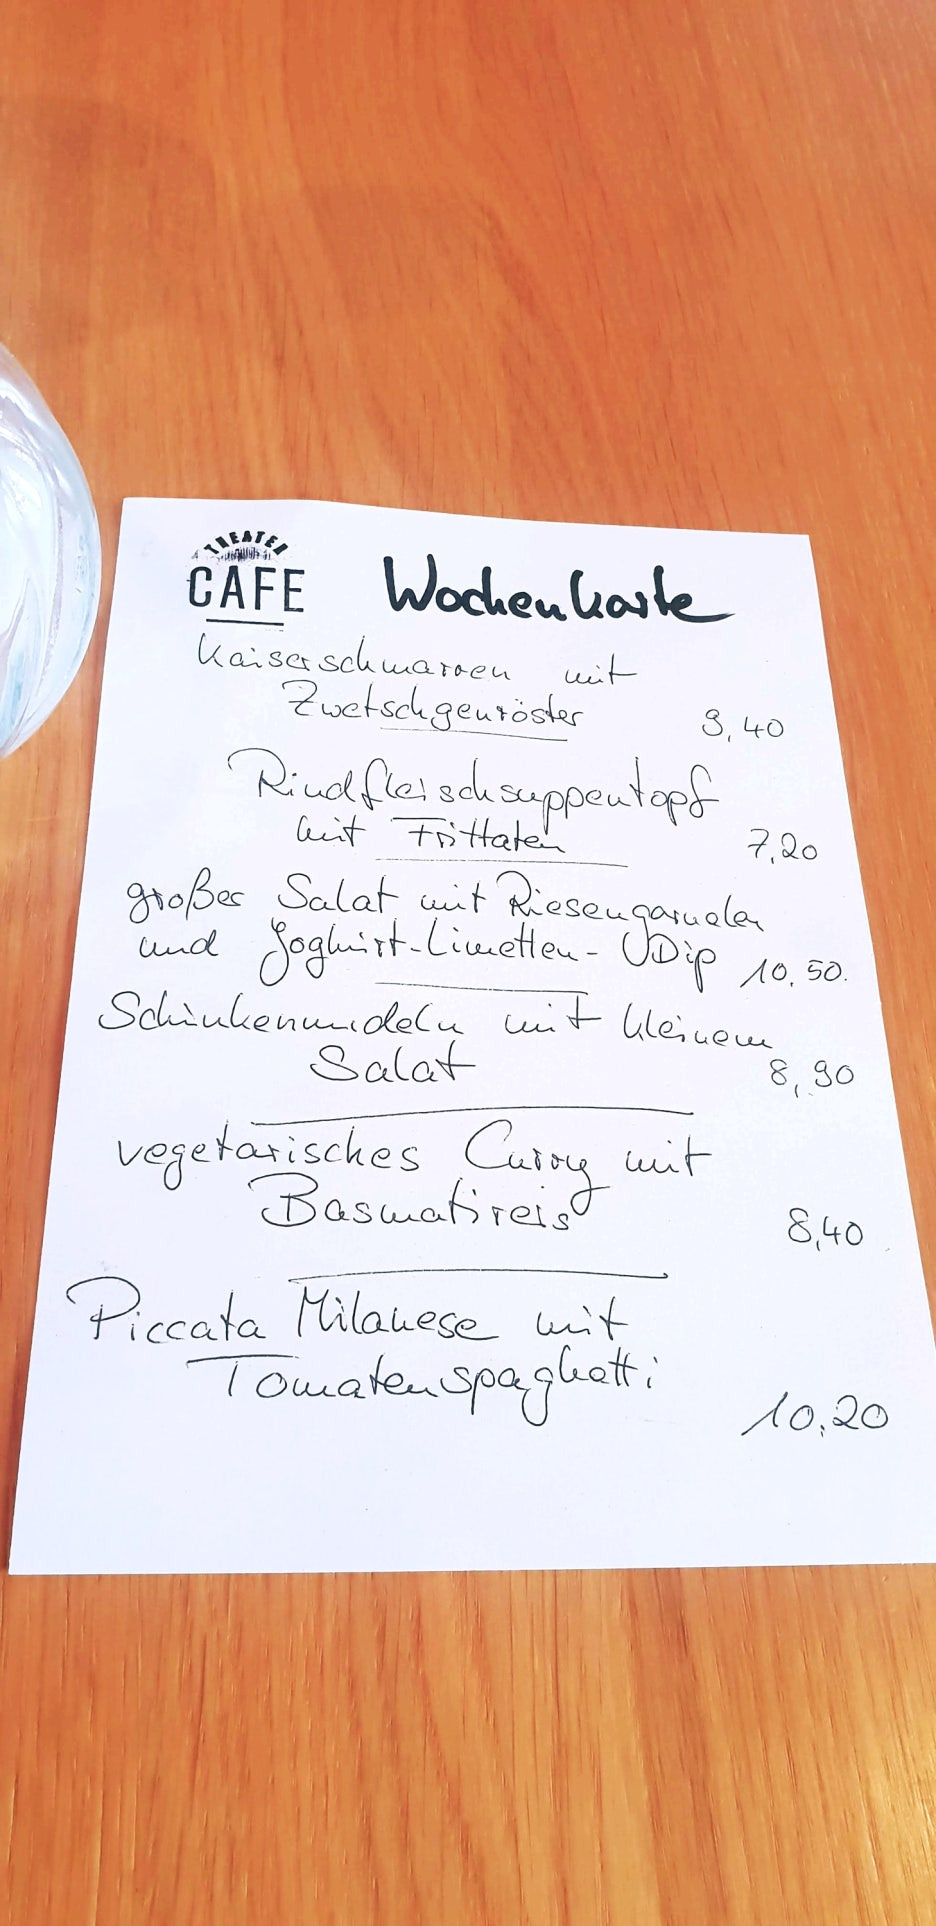 THEATER
CAFE
Wochenkarte
Kaiserschmarren mit
Zwetschgenröster 9,40
Rindfleischsuppentopf
mit Frittaten 7,20
großer Salat mit Riesengarnelen
und Joghurt-Limetten-Dip 10,50.
Schinkennudeln mit kleinem
Salat 8,90
vegetarisches Curry mit
Basmatireis 8,40
Piccata Milanese mit
Tomatenspaghetti
10,20